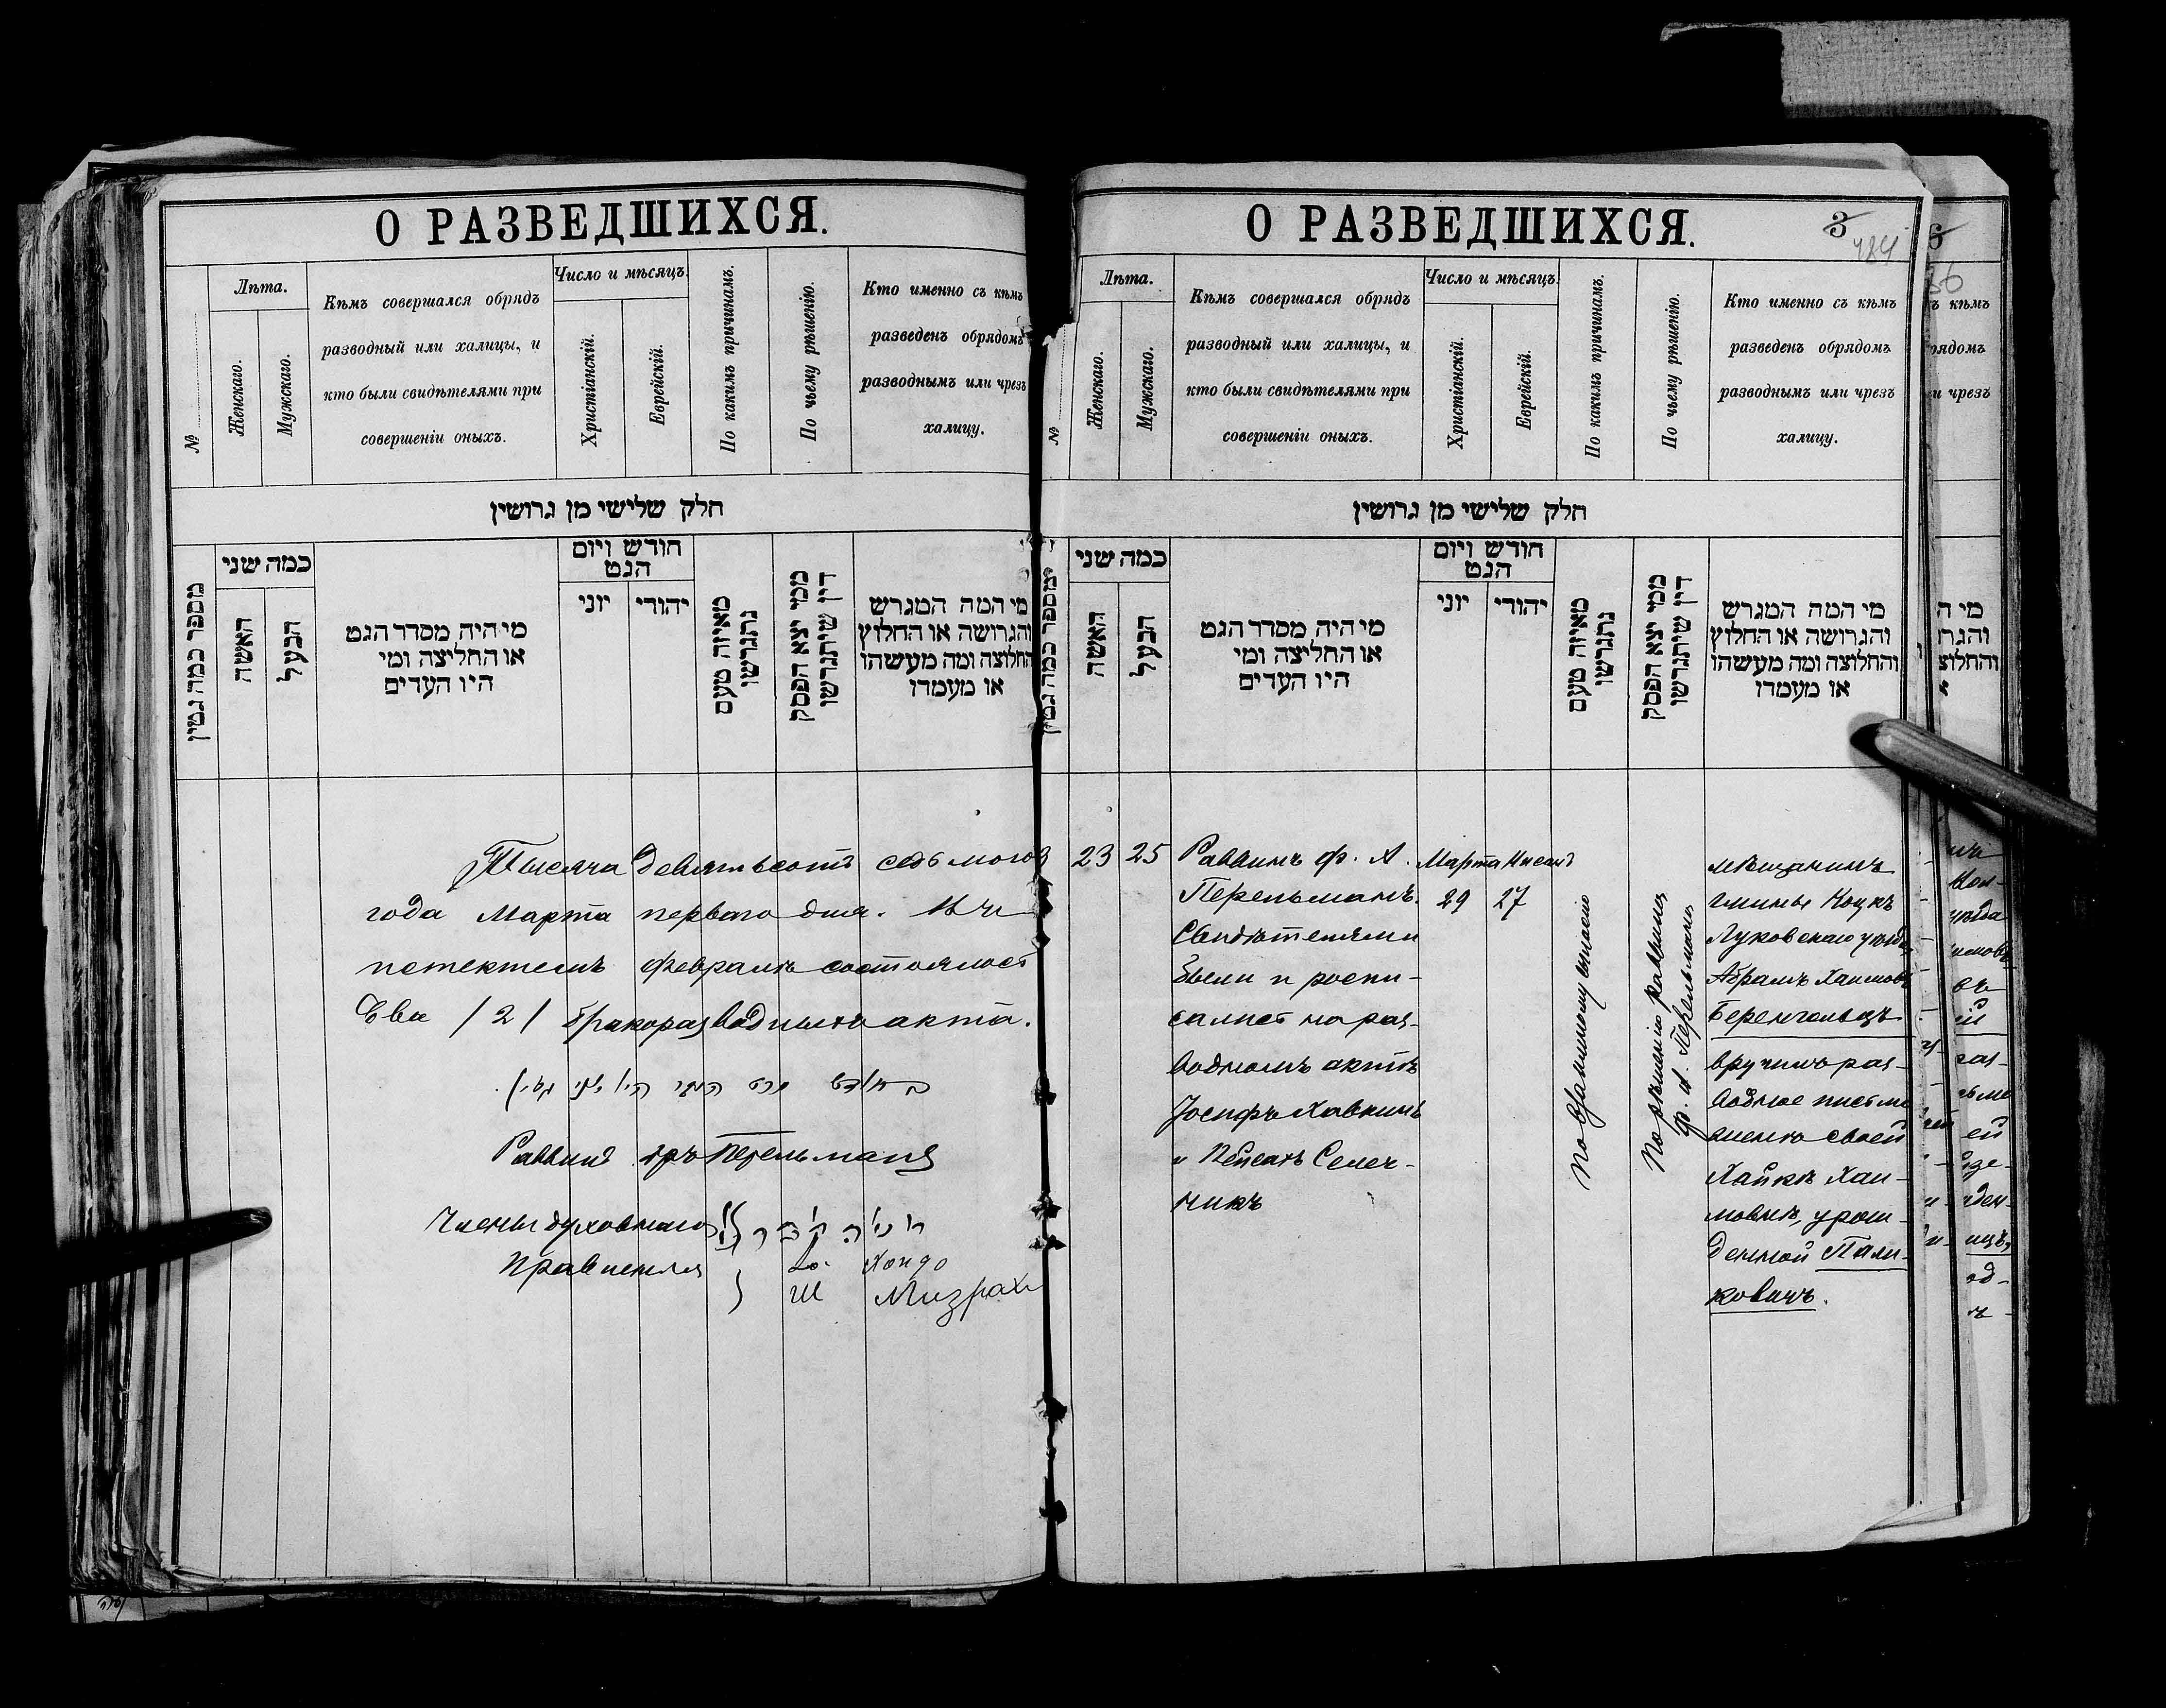 О РАЗВЕДШИХСЯ.
№
Лѣта.
Женскаго.
Мужскаго.
Кѣмъ совершался обрядъ
разводный или халицы, и
кто были свидѣтелями при
совершеніи оныхъ.
Число и мѣсяцъ.
Христіанскій.
Еврейскій.
По какимъ причинамъ.
По чьему рѣшенію.
Кто именно съ кѣмъ
разведенъ обрядомъ
разводнымъ или чрезъ
халицу.
חלק שלישי מן גרושין
מספר כמה גטין
כמה שני
האשה
הבעל
מי היה מסדר הגט
או החליצה ומי
היו העדים
חודש ויום
הגט
יוני
יהודי
מאיזה טעם
נתגרשו
ממי יצא הפסק
דין שיתגרשו
מי המה המגרש
והגרושה או החלוץ
והחלוצה ומה מעשהו
או מעמדו
Тысяча девятьсотъ седьмого
года Марта перваго дня. Въ
истекшемъ февралѣ состоялось
два /2/ бракоразводныхъ акта.
Раввинъ Перельманъ
Члены духовнаго
Правленія
Ш Мизрахи
О РАЗВЕДШИХСЯ.
3
484
№
Лѣта.
Женскаго.
Мужскаго.
Кѣмъ совершался обрядъ
разводный или халицы, и
кто были свидѣтелями при
совершеніи оныхъ.
Число и мѣсяцъ.
Христіанскій.
Еврейскій.
По какимъ причинамъ.
По чьему рѣшенію.
Кто именно съ кѣмъ
разведенъ обрядомъ
разводнымъ или чрезъ
халицу.
חלק שלישי מן גרושין
מספר כמה גטין
כמה שני
האשה
הבעל
מי היה מסדר הגט
או החליצה ומי
היו העדים
חודש ויום
הגט
יוני
יהודי
מאיזה טעם
נתגרשו
ממי יצא הפסק
דין שיתגרשו
מי המה המגרש
והגרושה או החלוץ
והחלוצה ומה מעשהו
או מעמדו
23
25
Раввинъ ф. А.
Перельманъ.
Свидѣтелями
были и роспи-
сались на раз-
водномъ актѣ
Іосифъ Хавкинъ
и Пейсахъ Селеч-
никъ
Марта
29
Нисанъ
27
По взаимному
По рѣшенію раввина
ф. А. Перельмана
мѣщанинъ
гмины Коцкъ
Луковскаго уѣзда,
Абрамъ Хаимовъ
Беренгольцъ
вручилъ раз-
водное письмо
женѣ своей
Хайкѣ Хаи-
мовнѣ, урож-
денной Пали-
ковичъ.